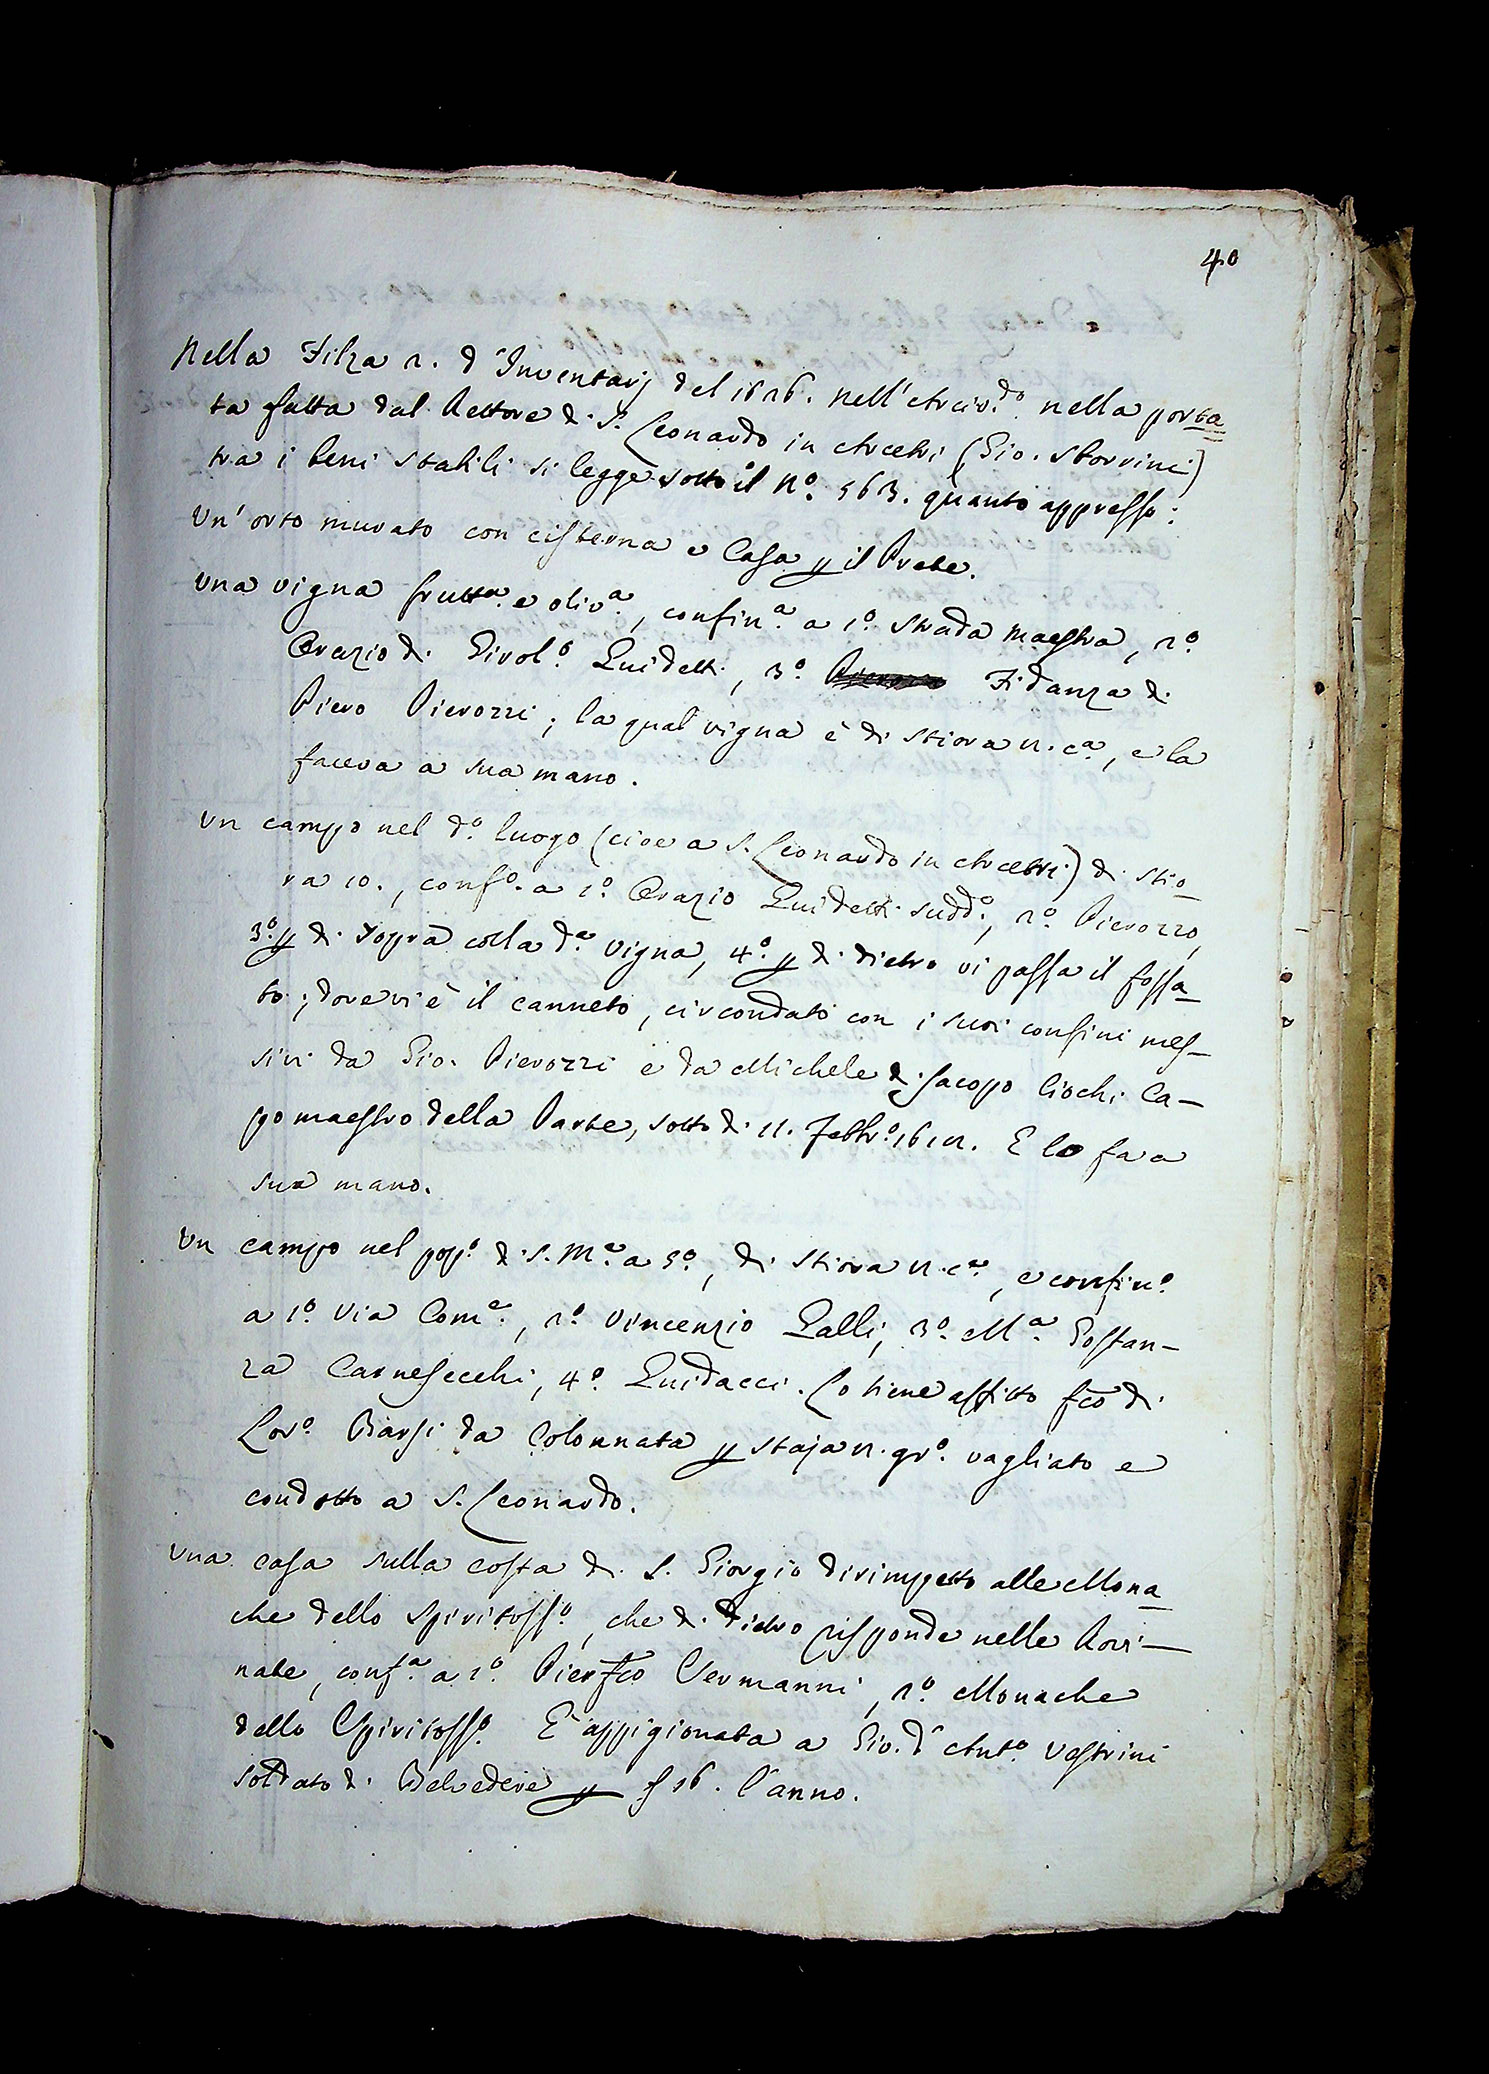 40
Nella Filza 2. d'Inventarj del 1626. nell'Arciv.do nella porta
ta fatta dal Rettore di S. Leonardo in Arcetri (Gio. Sborrini)
tra i beni stabili si legge sotto il No. 563. quanto appresso:
Un'orto murato con cisterna e Casa p il Prete.
Una vigna frutta. e oliva., confin.a a 1o. strada maestra, 2o
Orazio di Girol.o Guidetti, 3o. Fidanza di
Piero Pierozzi; la qual vigna è di stiora n. ca, e la
faceva a sua mano.
Un campo nel do. luogo (cioe a S. Leonardo in Arcetri) di stio-
ra 10., confo. a 1o Orazio Guidetti sudd.o, 2o Pierozzo,
3o. p di sopra colla da. vigna, 4o. p di dietro vi passa il fossa
to; dove vi è il canneto, circondato con i suoi confini mes-
sivi da Gio. Pierozzi e da Michele di Jacopo Ciochi Ca-
po maestro della Parte, sotto di 11. Febbr.o 161n. E lo fa a
sua mano.
Un campo nel pop.o di S. Ma. a 5o, di stiora n. ca., e confin.o
a 1o. Via Com.e, 2o. Vincenzio Galli, 3o. Ma. Gostan-
za Carnesecchi, 4o. Guidacci. Lo tiene affitto fco di
Lor.o Barsi da Colonnata p staja n. gr.o vagliato e
condotto a S. Leonardo.
Una casa sulla costa di S. Giorgio dirimpetto alle Mona
che dello Spiritosso, che di dietro risponde nelle Rovi-
nate, conf.a a 1o. Pierfco Vermanni, 2o. Monache
dello Spiritosso. E' appigionata a Gio. d'Anto. Vestrini
soldato di Belvedere p f 16. l'anno.